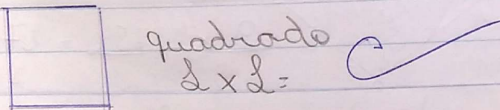 quadrado
L x L =